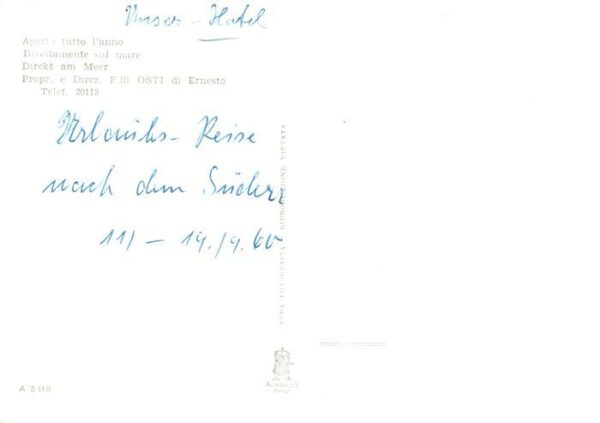 Unser - Hotel
Aperto tutto l'anno
Direttamente sul mare
Direkt am Meer
Propr. e Direz. F.lli OSTI di Ernesto
Telef. 20113
Urlaubs-Reise
nach dem Süden
11/ - 19./9. 60
VERA FOTOGRAFIA RIPRODUZIONE VIETATA
A 5416